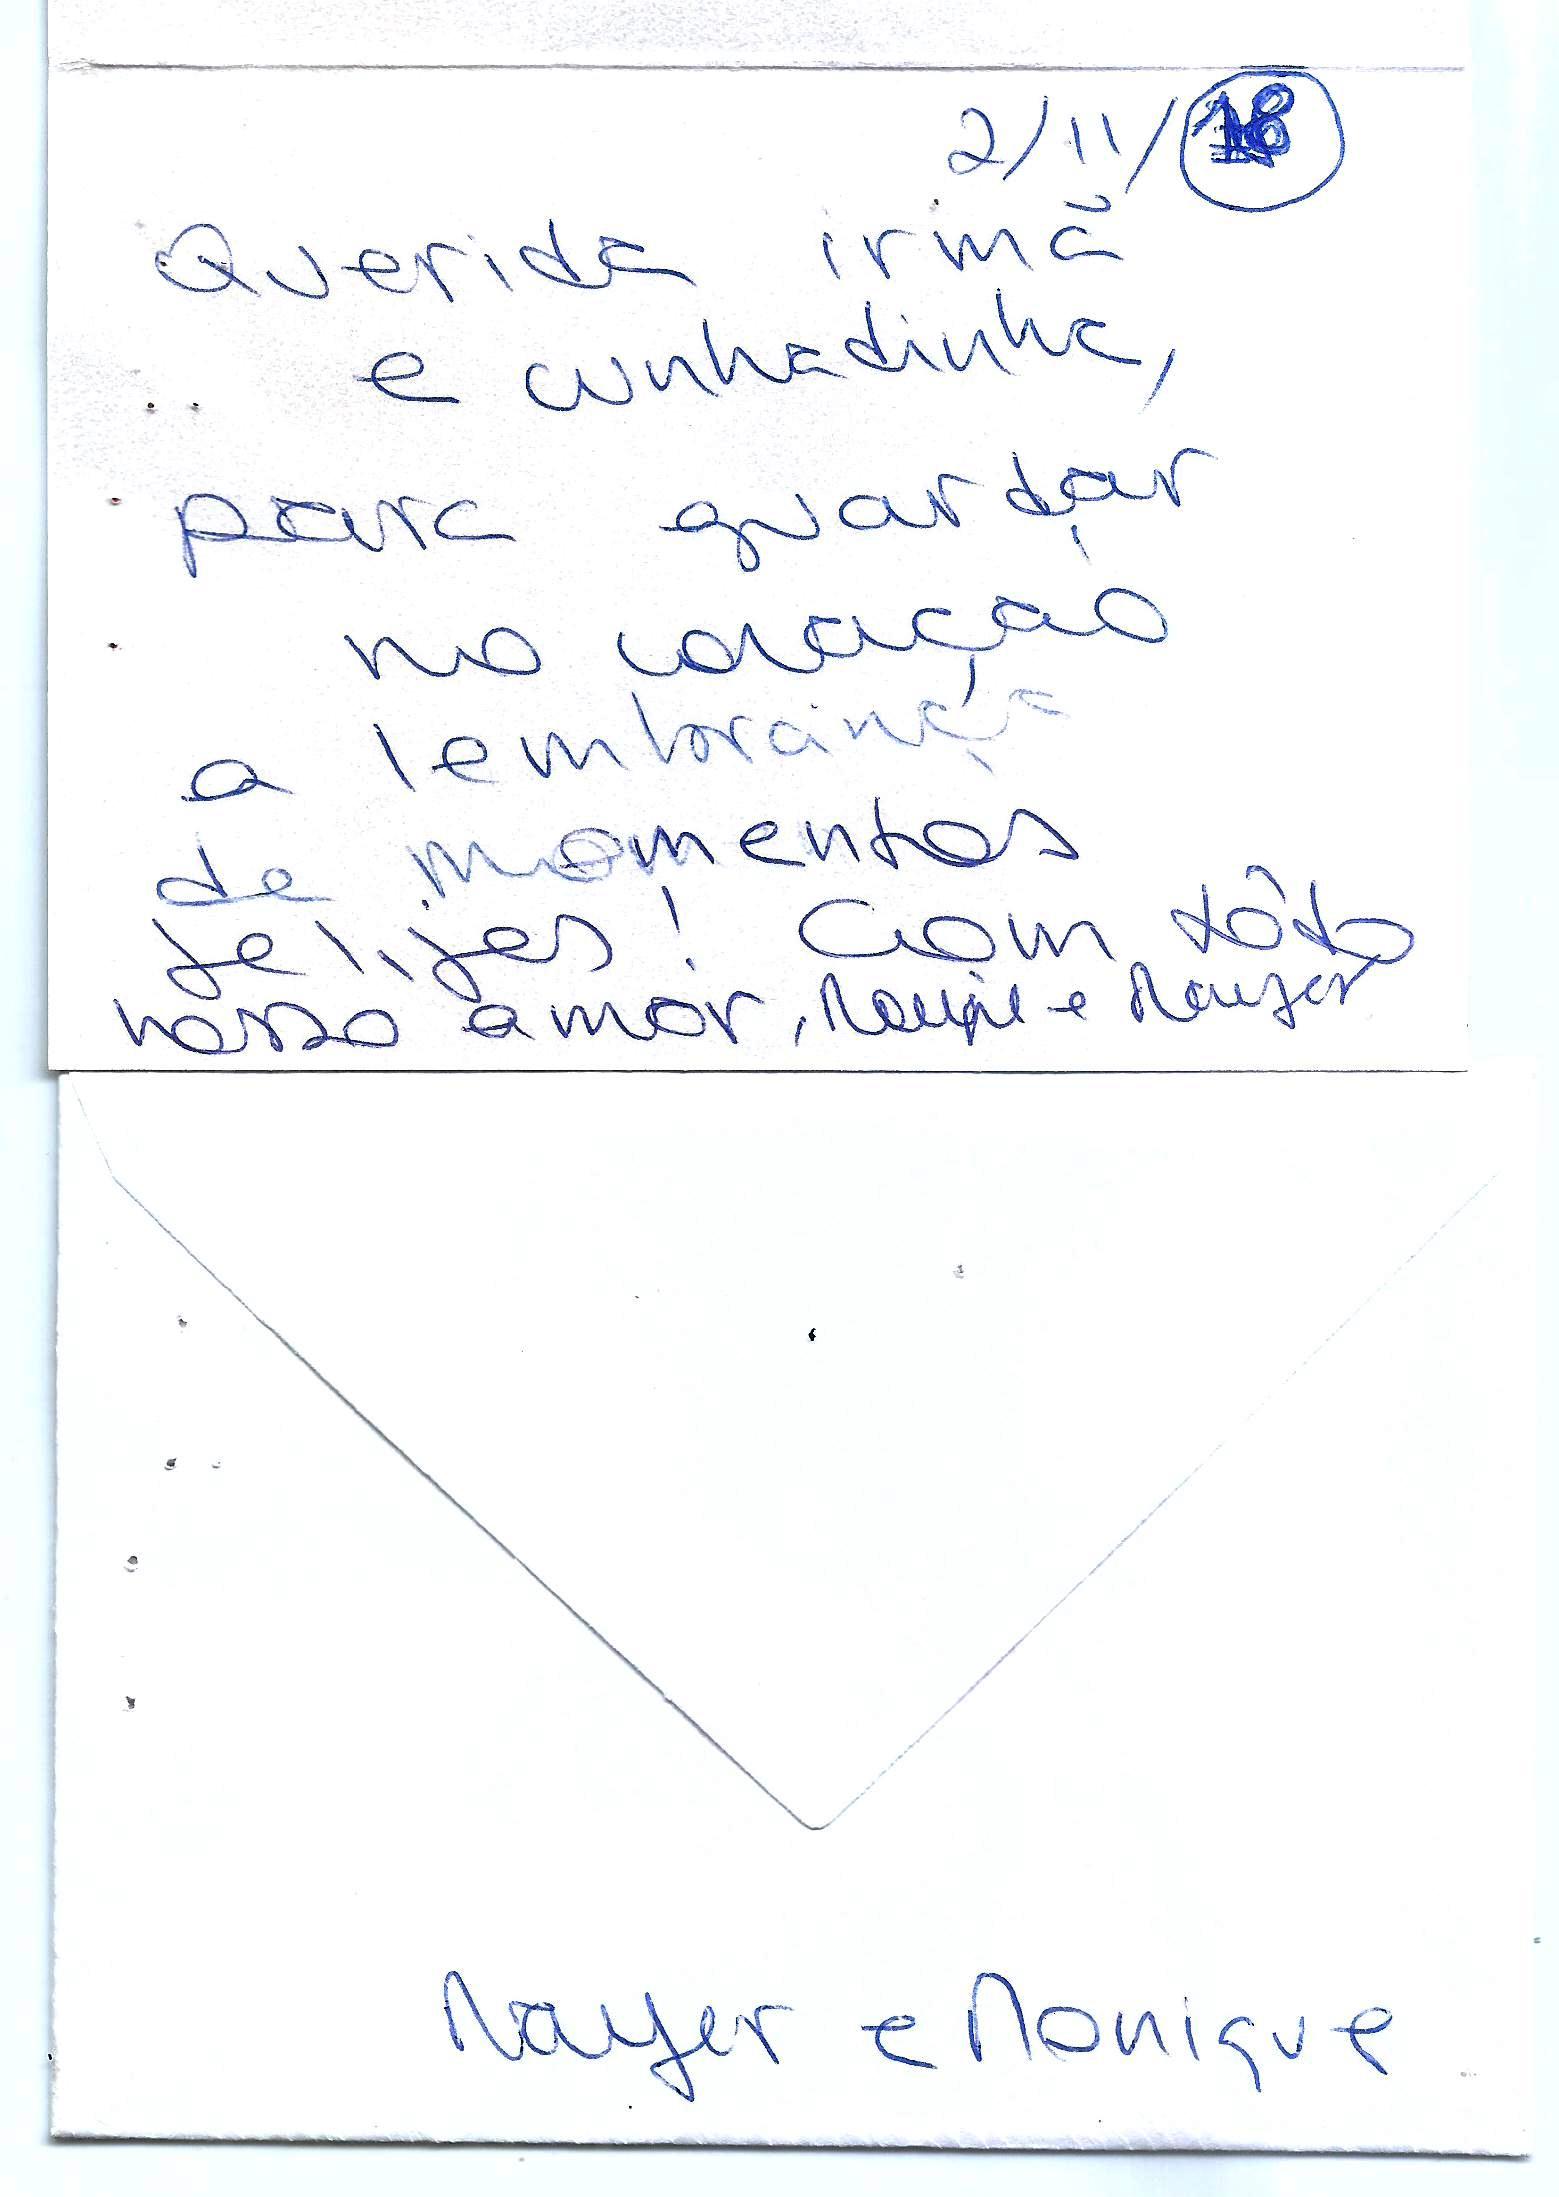 2/11/18
Querida irmã
e cunhadinha,
para guardar
no coração
a lembrança
de momentos
felizes! Com tôdo
nosso amor, Monique e Mayer
Mayer e Monique